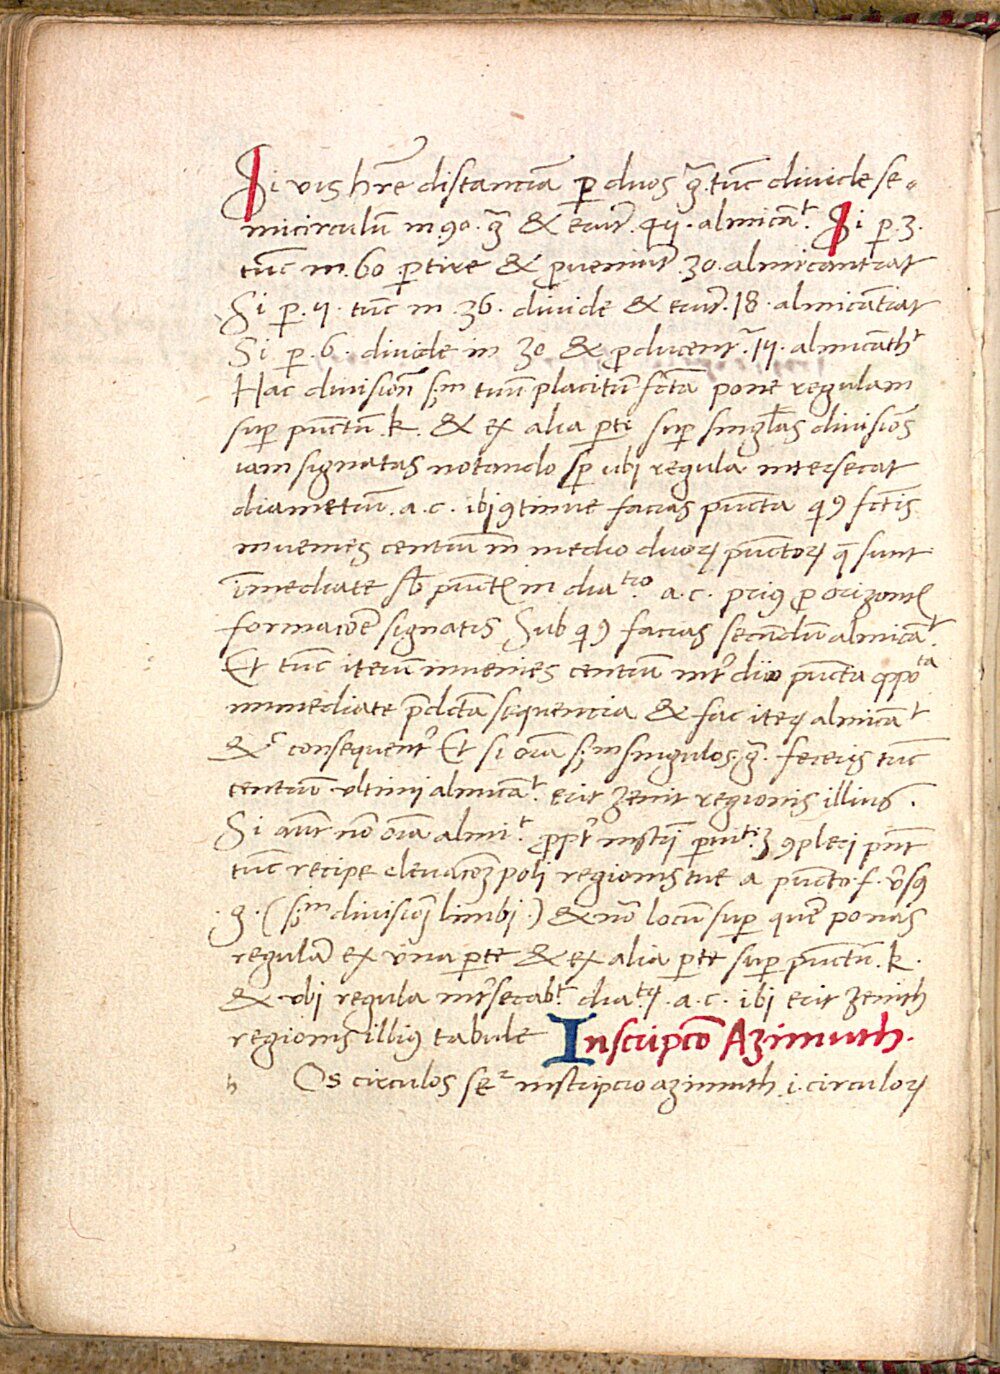 Si vis hr̄e distanciā ꝑ duos g̃. tūc divide se⸗
micirculū in .90. g̃ & erūt .45. almicāᵗ. Si ꝑ .3.
tūc in .60 ꝑtire & ꝓveniūt .30. almicantrat
Si ꝑ .5. tūc in .36. divide & erūt .18. almicātrat
Si ꝑ .6. divide in 30 & ꝓducent᷑ .15. almicāthᵗ
Hac divisiōe ẜᵐ tuū placitū fctā pone regulam
suꝑ punctū .k. & ex alia ꝑte suꝑ singl̄as divisiōes
iam signatas notando sꝑ ubi regula intersecat
diametrū .a.c. ibi ꝯtinue facias puncta qⁱꝰ fctis
invenies centrum in medio duoꝝ punctoꝝ q̄ sunt
īmediate sb̄ punct in diaᵗʳᵒ a.c. priꝰ ꝓ orizonte
formacōe signatis Sub qⁱꝰ facias secundū almicāᵗ.
Et tūc iterū invenies centrum int̄ duo puncta ꝓpoᵗᵃ
immediate p̄dcta sequencia & fac iteꝝ almicāᵗ
&c̄ consequent̄ Et si oīa ẜᵐ singulos .g̃. feceris tūc
centrū ultimi almicāᵗ. erit zenit regionis illius .
Si aūt nō oīa almiᵗ ꝓpt̄ inst̄i ꝑvitꝫ ꝯpleri pn̄t
tūc recipe elevacōeꝫ poli regionis tue a puncto .f. v̄sqꝫ
.g. (ẜᵐ divisiōꝫ limbi .) & nō locū suꝑ quē ponas
regulā ex una ꝑte & ex alia ꝑte suꝑ punctū .k.
& ubi regula int̄secabᵗ diaᵗʳū .a.c. ibi erit zenith
regionis illiꝰ tabule Inscripcō Azimuth.
h Os circulos seʳ inscripcio azimuth .i. circuloꝝ